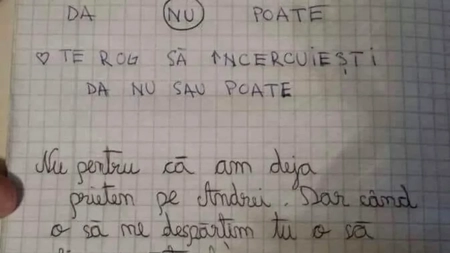 DA NU POATE
♡ TE ROG SĂ ÎNCERCUIEȘTI
DA NU SAU POATE
Nu pentru că am deja
prieten pe Andrei. Dar când
o să me despărțim tu o să